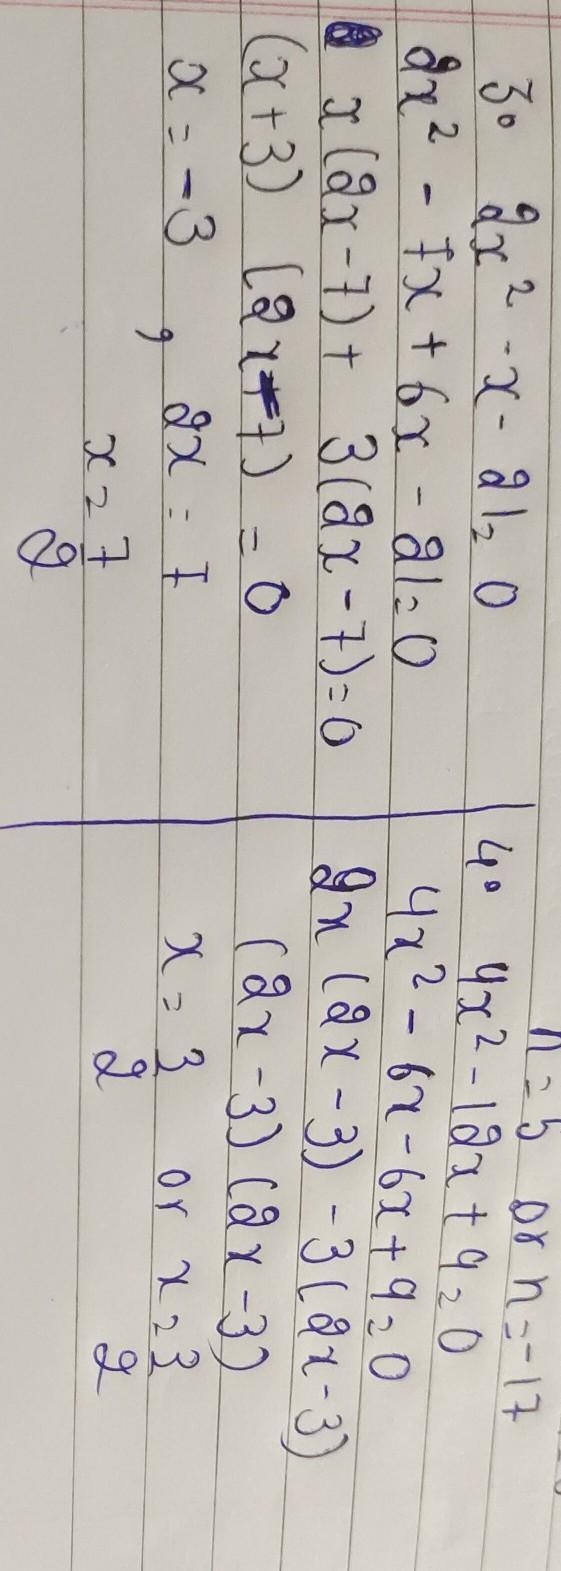 3. 2x² - x - 21 = 0
2x² - 7x + 6x - 21 = 0
x(2x - 7) + 3(2x - 7) = 0
(x+3) (2x - 7) = 0
x = -3 , 2x = 7
x = 7/2
n = 5 or n = -17
4. 4x² - 12x + 9 = 0
4x² - 6x - 6x + 9 = 0
2x (2x - 3) - 3(2x - 3)
(2x - 3) (2x - 3)
x = 3/2 or x = 3/2